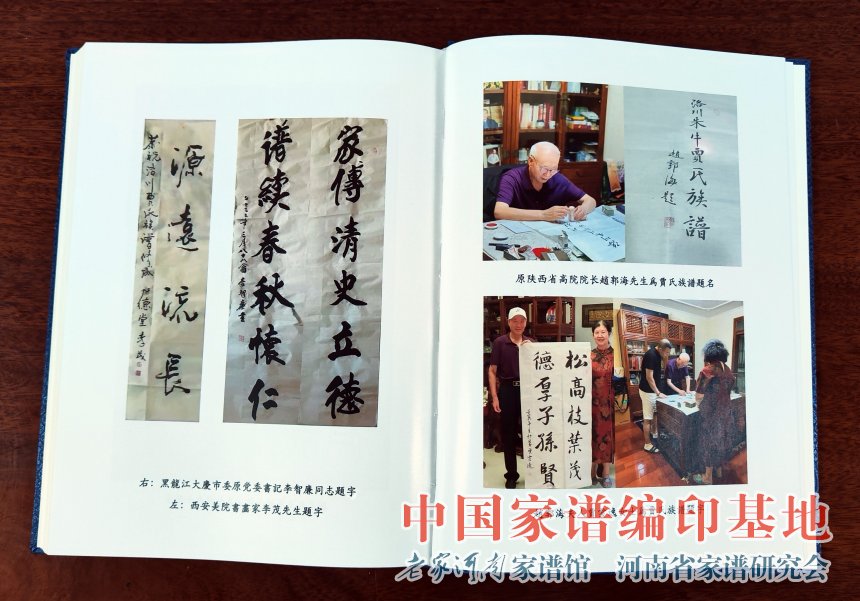 源遠流長
恭祝洛川賈氏族譜修成
家傳清史立德
譜續春秋懷仁
右：黑龍江大慶市委原党委書記李智廉同志題字
左：西安美院書畫家李茂先生題字
洛川朱牛賈氏族譜
趙郭海題
原陝西省高院院长趙郭海先生爲賈氏族譜題名
松高枝葉茂
德厚子孫賢
中国家谱编印基地
老家河南家谱馆 河南省家谱研究会